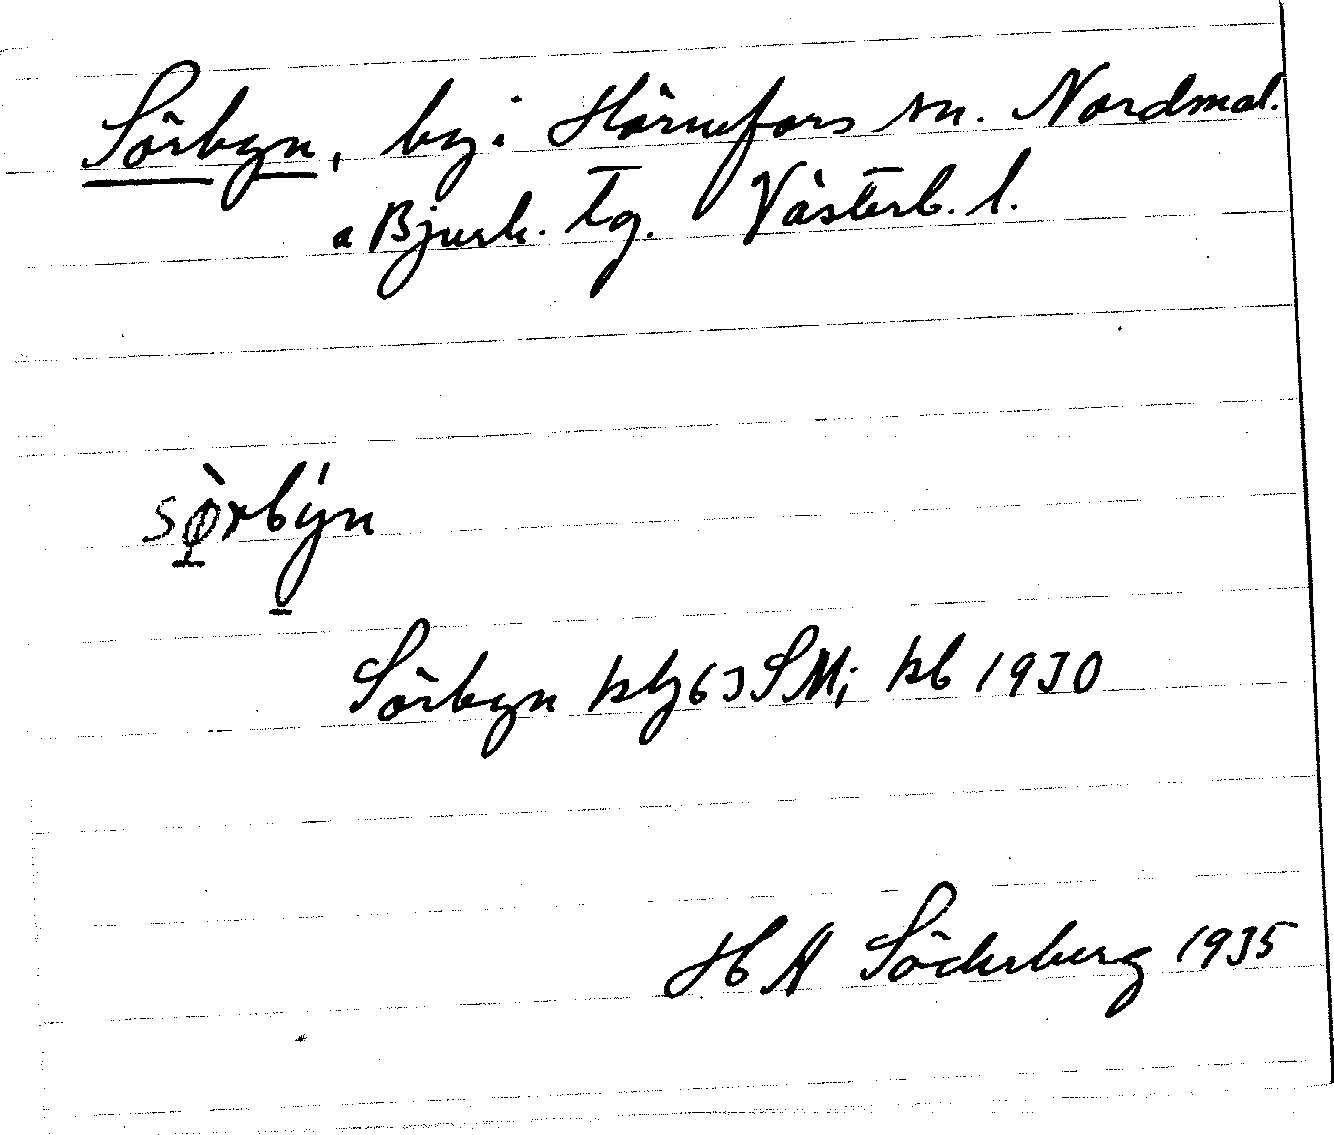 Sörbyn, by i Hörnefors sn. Nordmal.
o Bjurh. tg. Västerb. l.
sø̀rbýn
Sörbyn bl 63 SM; kb 1930
H A Söderberg 1935